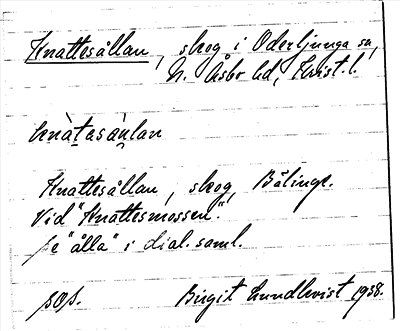 Knattesållan, skog i Oderljunga sn,
N. Åsbo hd, Krist. l.
knàtasàulan
Knattesållan, skog, Bälinge.
Vid "Knattesmossen".
se "ålla" i dial. saml.
Birgit Lundkvist 1938.